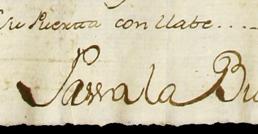 su Puerta con llabe....
Passa la Bu